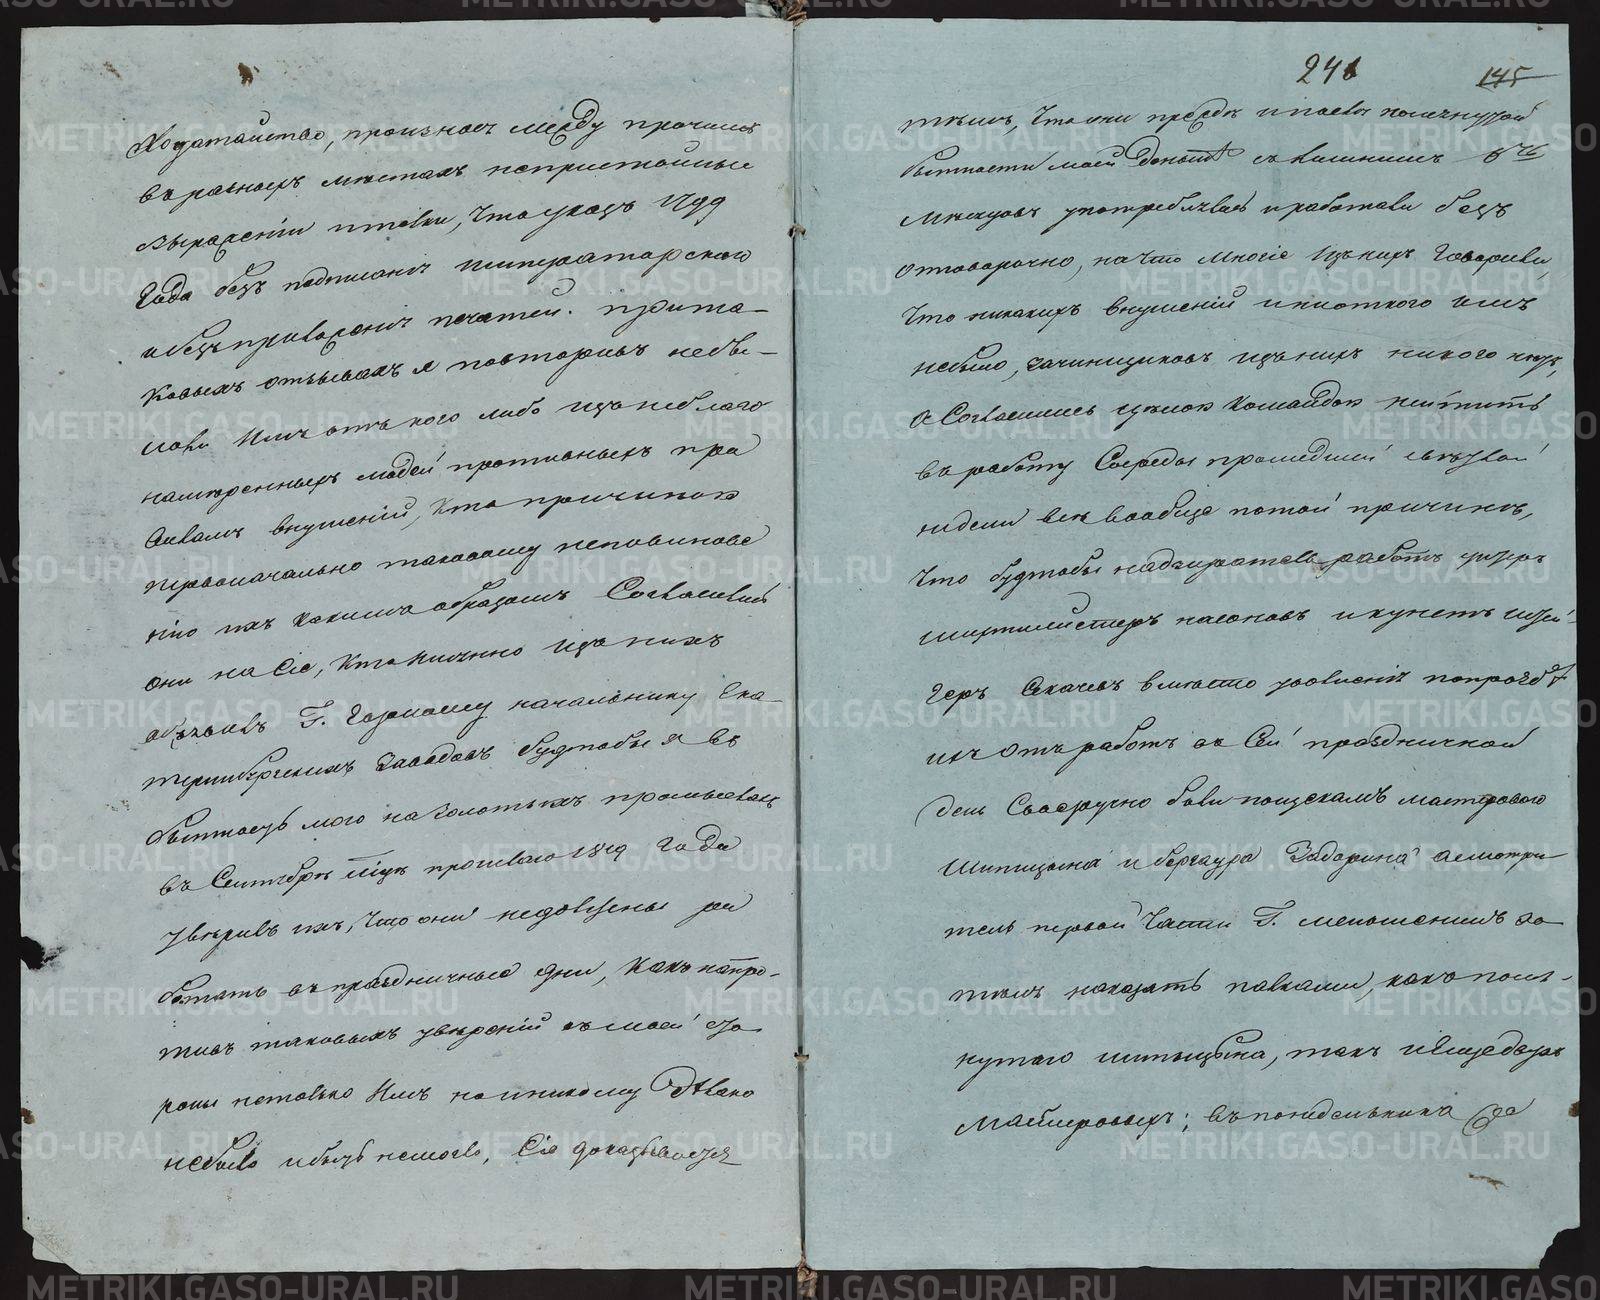 Ходатайство, произнося между прочимъ
въ разныхъ мѣстахъ непристойные
выраженіи и толки, Что указъ 1799
Года безъ подписанія императорскаго
и безъ приложенія печатей. при та-
ковыхъ отзывахъ я повторилъ небы-
ло ли Имъ отъ кого либо изъ неблаго
намѣренныхъ людей противныхъ пра
виламъ внушеній, Кто причиною
первоначально таковому неповинове
нію ихъ какимъ образомъ Согласились
они на Сіе, Кто Именно изъ нихъ
объявилъ Г. Горному начальнику Ека-
теринбургскихъ Заводовъ будтобы я въ
бытность мою на Золотыхъ промыслахъ
въ Сентябрѣ прошлаго 1819 Года
увѣрилъ ихъ, Что они недолжны ра
ботать въ праздничные дни, Какъ напро-
тивъ таковыхъ увѣреній съ моей сто
роны нетолько Имъ но и никому Дѣлано
небыло и быть немогло, Сіе доказывается
241 145
тѣмъ, Что они прежде и послѣ помянутой
бытности моей съ
Мѣсяцовъ употреблялись и работали безъ
отговорочно, на Что Многіе Изъ нихъ Говорили,
Что никакихъ внушеній ни откого имъ
небыло, зачинщиковъ изъ нихъ никого нѣтъ,
а Согласились цѣлою Командою неиттить
въ работу Середы прошедшей
недели всѣ вообще потой причинѣ,
Что будтобы надзиратель работъ
шихтмейстеръ насоновъ и кунстъ штей-
геръ Скачевъ вмѣсто уволенія попрозбѣ
ихъ отъ работъ въ Сей праздничной
день Своеручно били мастероваго
Шипицына и бергаура Задорина а смотри
тель первой Части Г. меншенинъ хо
тѣлъ наказать палками, какъ помя-
нутаго шипицына, такъ и Ещедвухъ
Мастеровыхъ; въ понедельникъ
METRIKI.GASO-URAL.RU